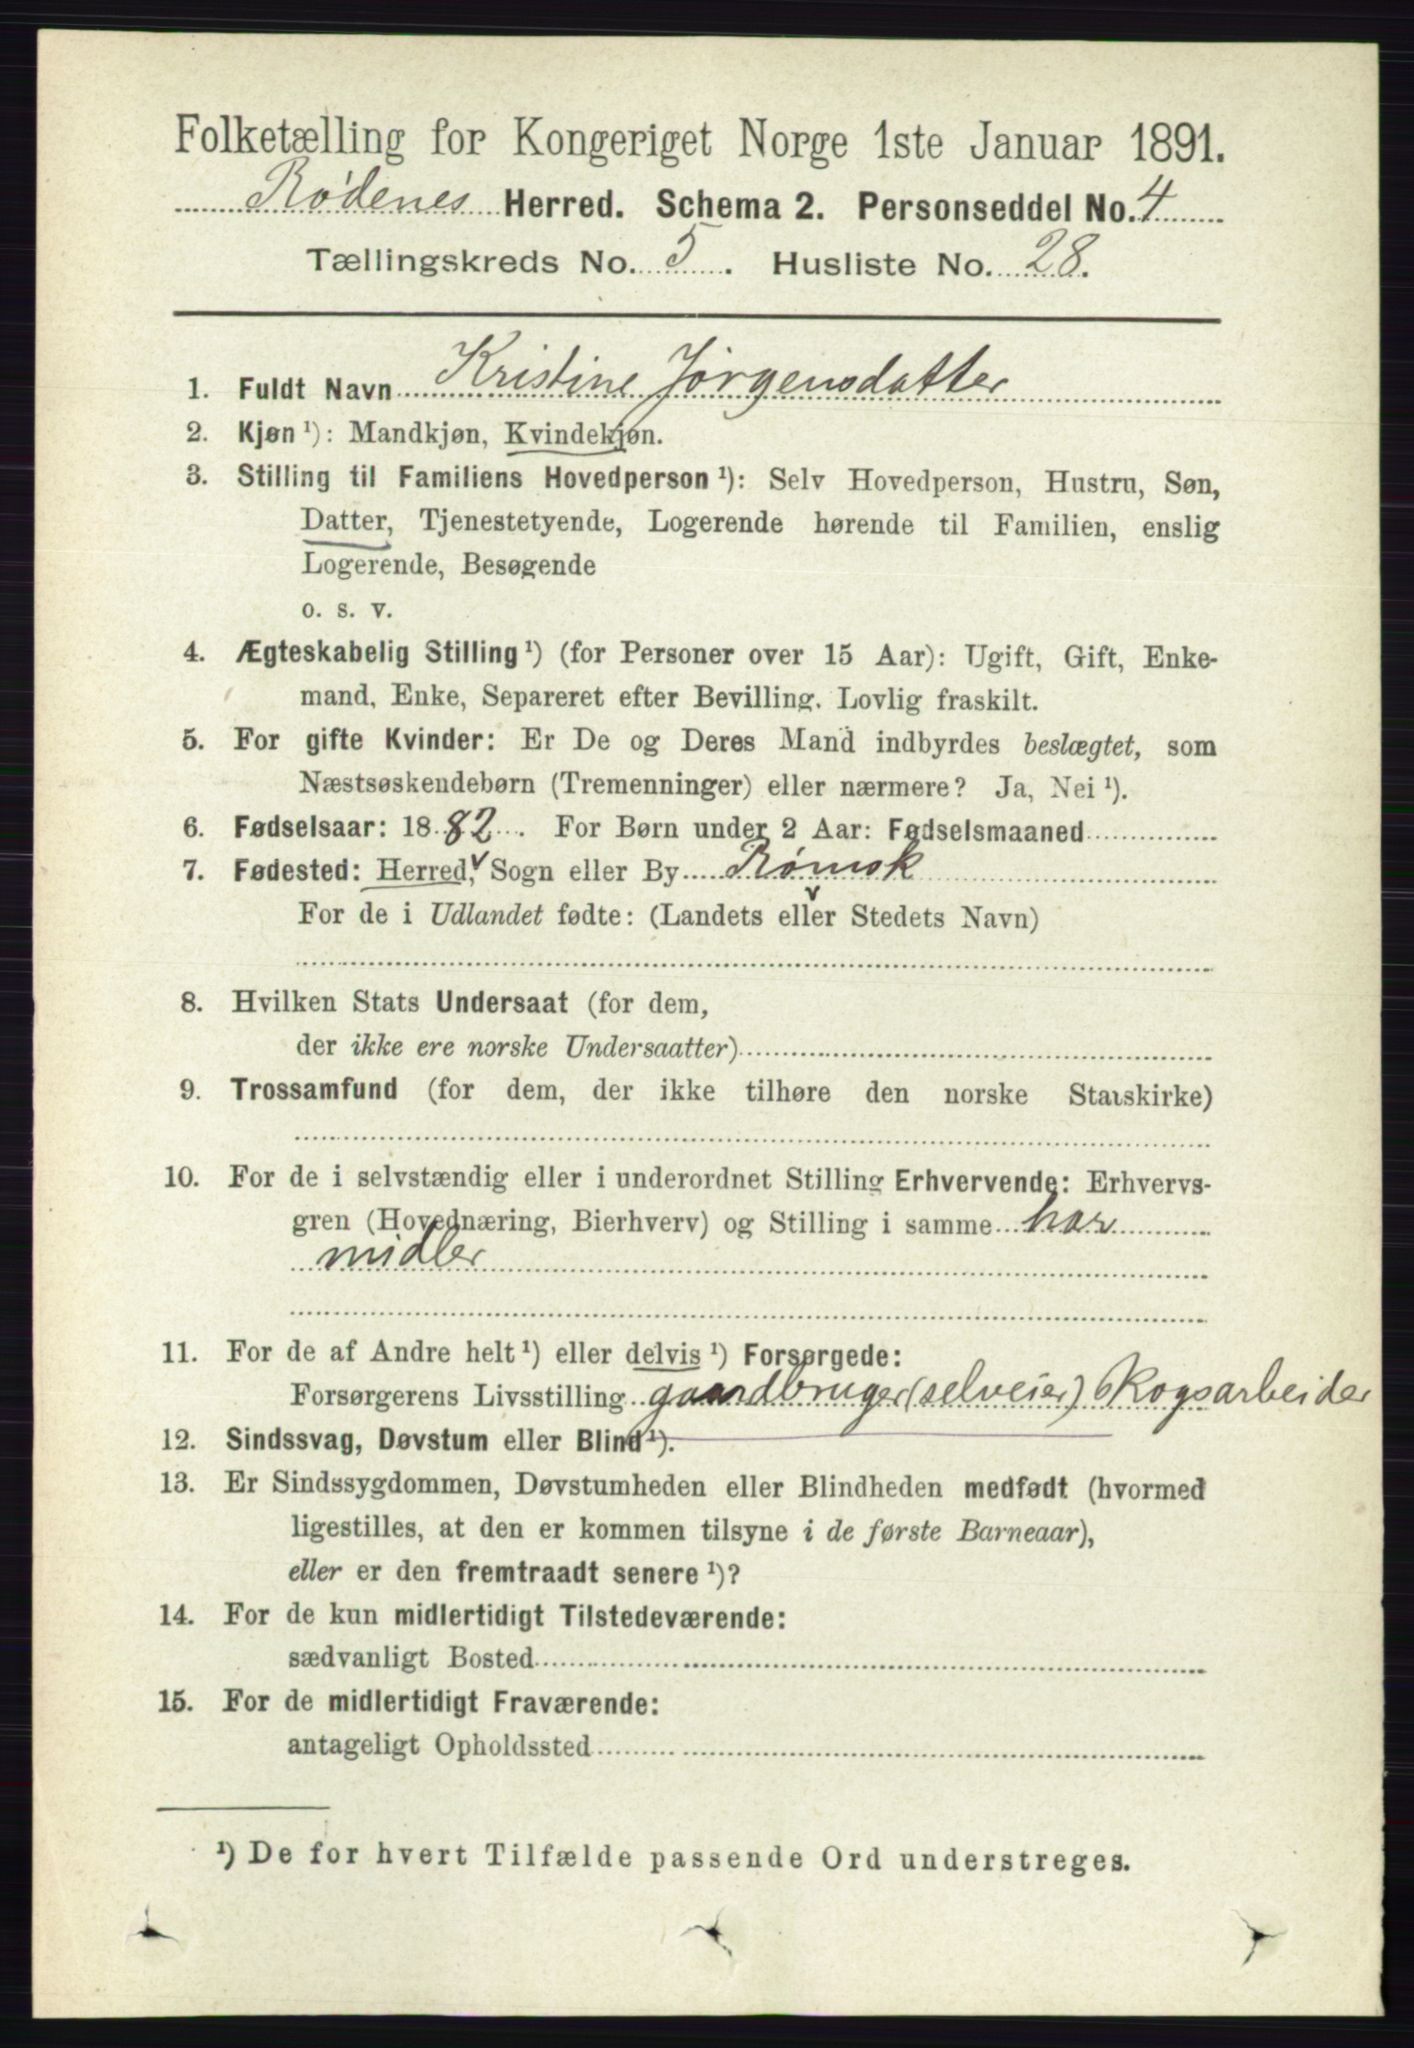 Folketælling for Kongeriget Norge 1ste Januar 1891.
Rødenes Herred. Schema 2. Personseddel No. 4
Tællingskreds No. 5. Husliste No. 28.
1. Fuldt Navn Kristine Jørgensdatter
2. Kjøn ¹): Mandkjøn, Kvindekjøn.
3. Stilling til Familiens Hovedperson ¹): Selv Hovedperson, Hustru, Søn,
Datter, Tjenestetyende, Logerende hørende til Familien, enslig
Logerende, Besøgende
o. s. v.
4. Ægteskabelig Stilling ¹) (for Personer over 15 Aar): Ugift, Gift, Enke-
mand, Enke, Separeret efter Bevilling. Lovlig fraskilt.
5. For gifte Kvinder: Er De og Deres Mand indbyrdes beslægtet, som
Næstsøskendebørn (Tremenninger) eller nærmere? Ja, Nei ¹).
6. Fødselsaar: 1882. For Børn under 2 Aar: Fødselsmaaned
7. Fødested: Herred, Sogn eller By Rømsk
For de i Udlandet fødte: (Landets eller Stedets Navn)
8. Hvilken Stats Undersaat (for dem,
der ikke ere norske Undersaatter)
9. Trossamfund (for dem, der ikke tilhøre den norske Statskirke)
10. For de i selvstændig eller i underordnet Stilling Erhvervende: Erhvervs-
gren (Hovednæring, Bierhverv) og Stilling i samme har
midler
11. For de af Andre helt ¹) eller delvis ¹) Forsørgede:
Forsørgerens Livsstilling gaardbruger (selveier) Skogsarbeider
12. Sindssvag, Døvstum eller Blind ¹).
13. Er Sindssygdommen, Døvstumheden eller Blindheden medfødt (hvormed
ligestilles, at den er kommen tilsyne i de første Barneaar),
eller er den fremtraadt senere ¹)?
14. For de kun midlertidigt Tilstedeværende:
sædvanligt Bosted
15. For de midlertidigt Fraværende:
antageligt Opholdssted
¹) De for hvert Tilfælde passende Ord understreges.